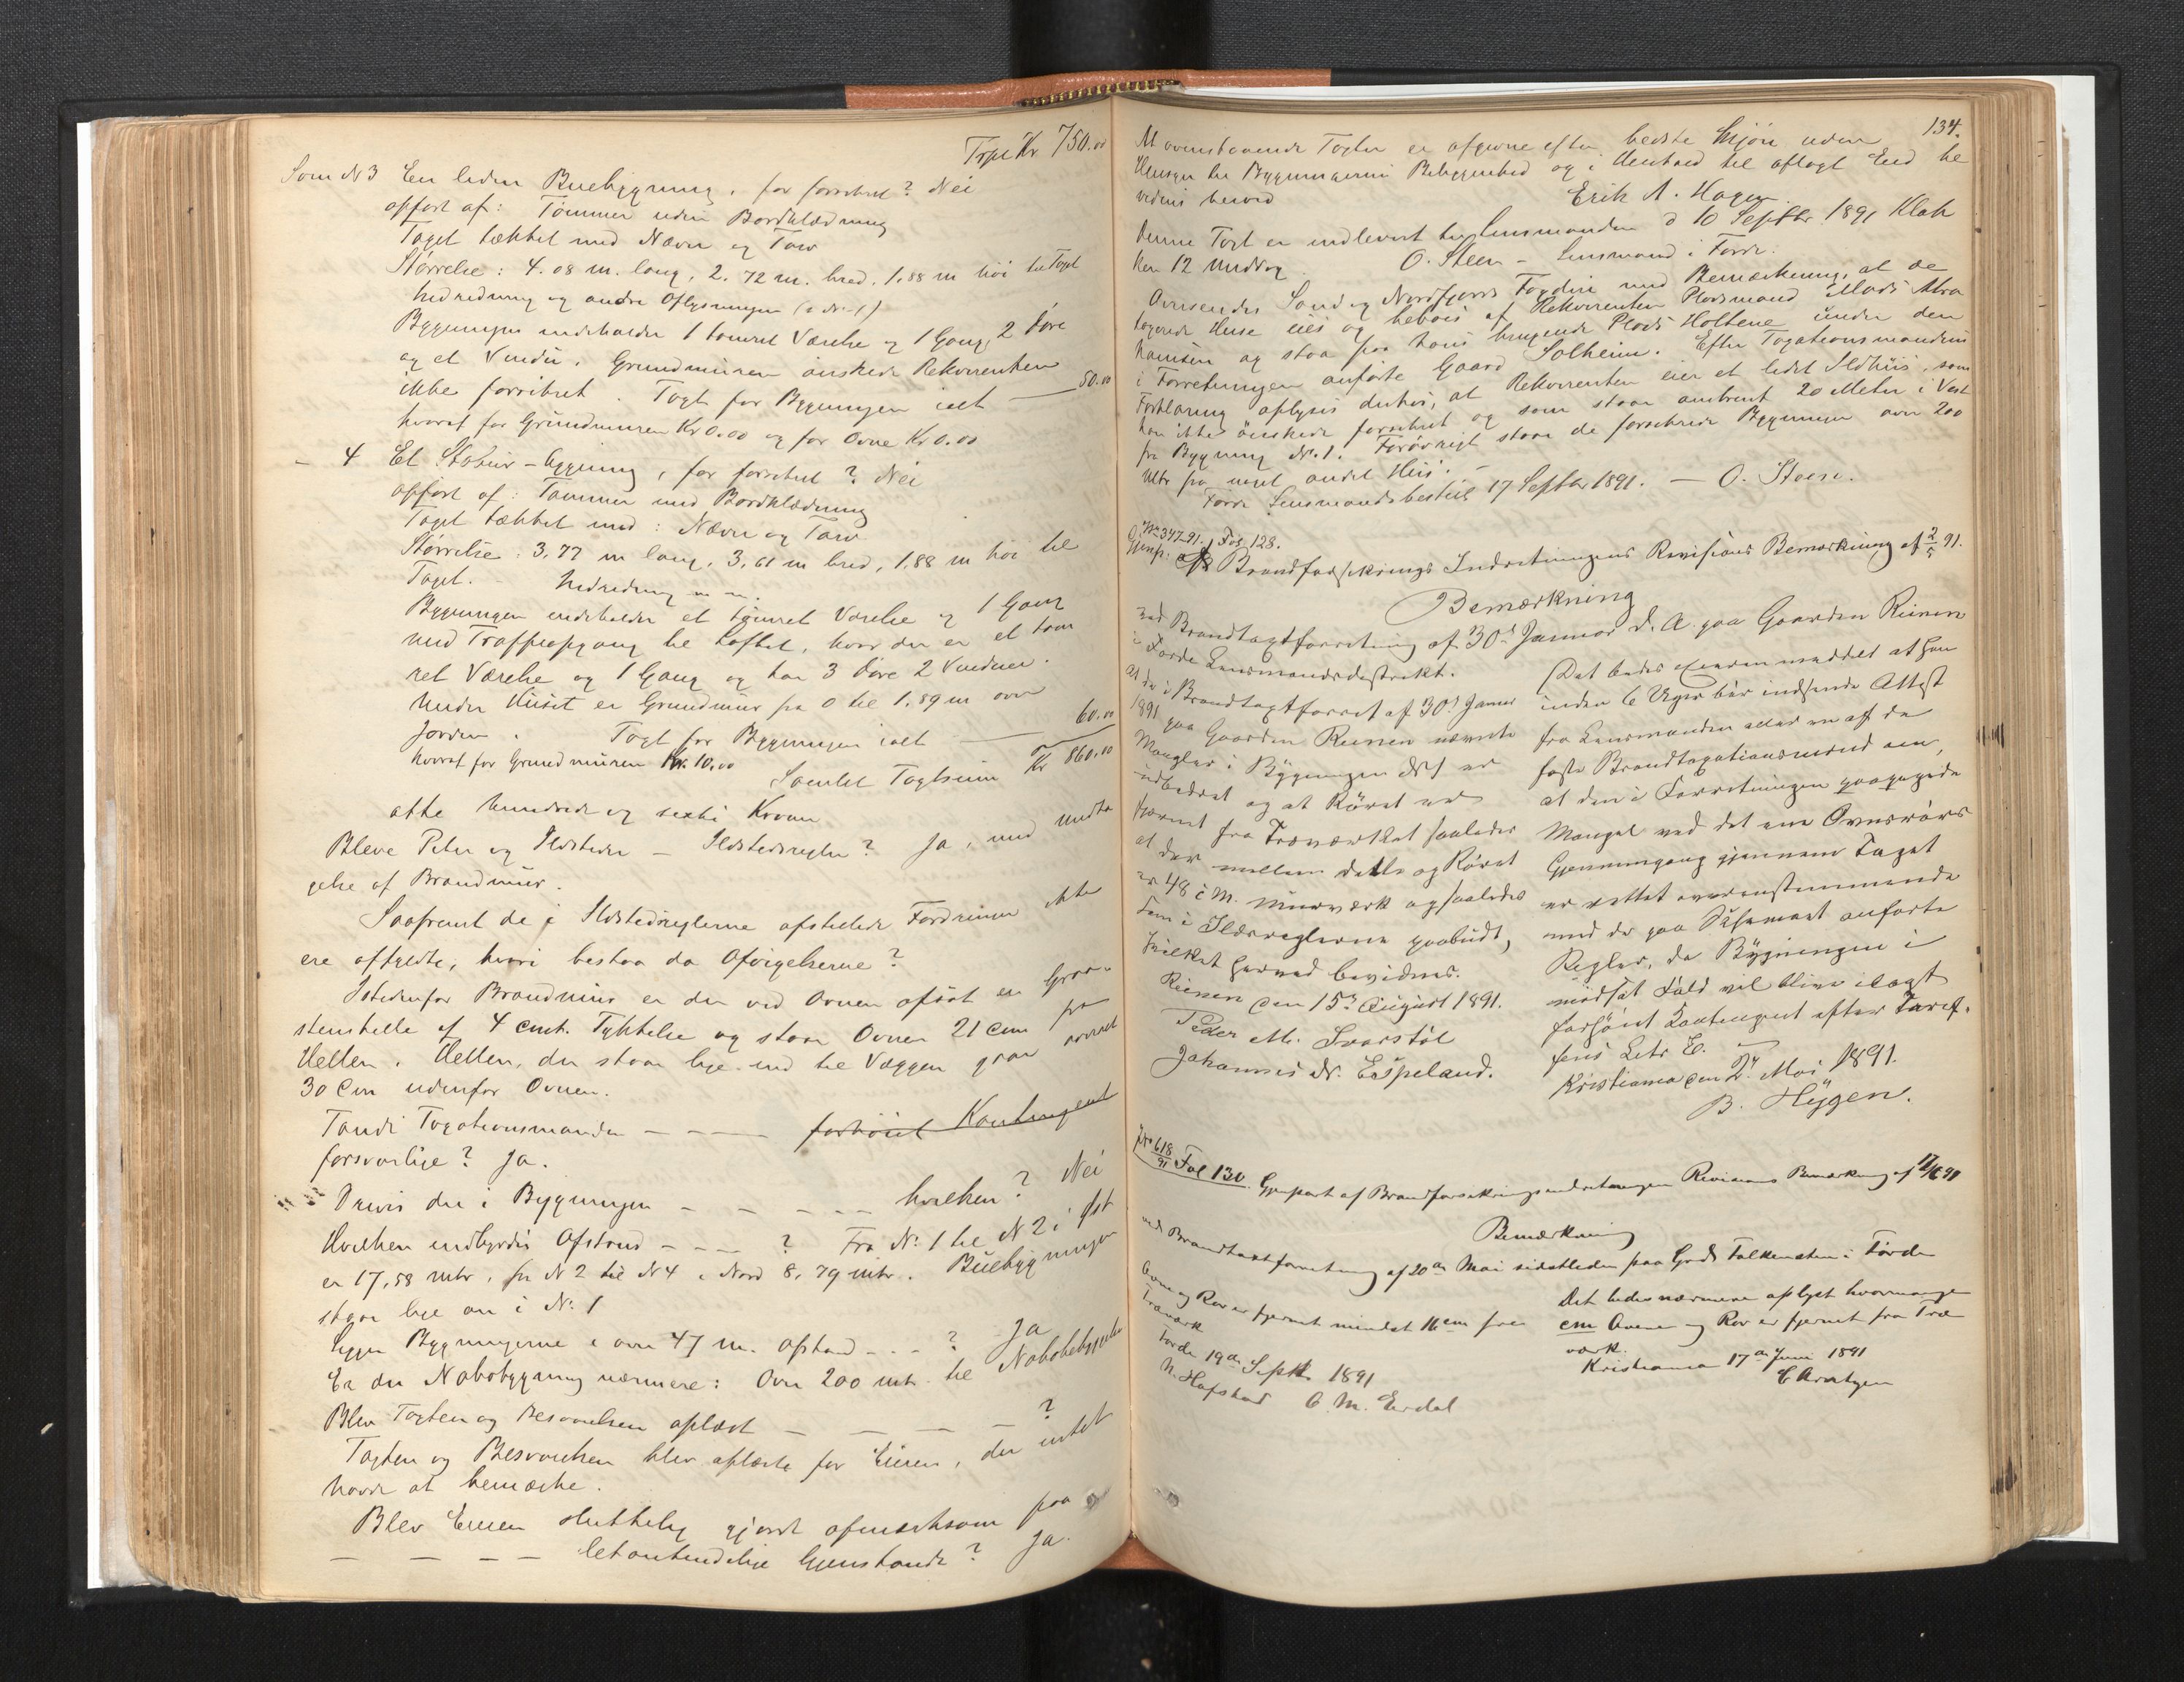 Trpt Kr 750.00
Som N 3 En liden Buebygning, før forsikret? Nei
opført af: Tømmer uden Bordklædning
Taget tækket med Næver og Torv
Størrelse: 4.08 m. lang, 2.72 m. bred, 1.88 m høi til Taget
Indredning og andre Oplysninger
Bygningen indeholder 1 tømret Værelse og 1 Gang, 2 Døre
og et Vindu. Grundmuren ønskede Rekvirenten
ikke forsikret. Taxt for Bygningen ialt — 50.00
hvoraf for Grundmuren Kr 0.00 og for Ovne Kr 0.00
– 4 Et Stabur-bygning, før forsikret? Nei
opført af: Tømmer med Bordklædning
Taget tækket med: Næver og Torv
Størrelse: 3,77 m lang, 3,61 m bred, 1,88 m høi til
Taget. – Indredning m. m.
Bygningen indeholder et tømret Værelse og 1 Gang
med Trappeopgang til Loftet, hvor der er et tøm
ret Værelse og 1 Gang og har 3 Døre 2 Vinduer.
Under Huset er Grundmur fra 0 til 1.89 m over
Jorden. Taxt for Bygningen ialt — 60.00
hvoraf for Grundmuren Kr. 10.00
Samlet Taxtsum Kr 860.00
otte hundrede og sexti Kroner
Bleve Piber og Ildsteder – Ildstedsregler? Ja, med undta
gelse af Brandmur.
Saafremt de i Ildstedsreglerne opstillede Fordringer ikke
ere opfyldte, hvori bestaa da Afvigelserne?
Istedenfor Brandmur er der ved Ovnen opført en Graa-
stenshelle af 4 cmt. Tykkelse og staar Ovnen 21 cm fra
Hellen. Hellen, der staar lige ind til Væggen gaar overalt
30 Cm udenfor Ovnen.
Fandt Taxationsmanden – – – forhöiet Kontingent
forsvarlige? Ja.
Drives der i Bygningen – – – – hvilken? Nei
Hvilken indbyrdes Afstand – – – ? Fra No. 1 til N 2 i Øst
er 17,58 mtr, fra N 2 til N 4 i Nord 8,79 mtr. Buebygningen
staar lige an i No. 1
Ligger Bygningerne i over 47 m. Afstand – – – ? Ja
Er der Nabobygning nærmere: Over 200 mtr. til Nabobebyggelse
Blev Taxten og Beskrivelsen oplæst – – – – ?
Taxten og Beskrivelsen blev oplæste for Eieren, der intet
havde at bemærke.
Blev Eieren skriftlig gjort opmærksom paa
– – – – letantændelige Gjenstande? Ja.
134.
At ovenstaaende Taxter er afgivne efter bedste Skjøn uden
Hensyn til Bygningernes Beliggenhed og i Henhold til aflagt Eed be
vidnes herved
Erik A. Hagen
Denne Taxt er indleveret til Lensmanden d 10 Septbr. 1891 Klok
ken 12 Middag. O. Steen – Lensmand i Førde.
Oversendes Sønd og Nordfjords Fogderi med Bemærkning, at de
taxerede Huse eies og beboes af Rekvirenten Pladsmand Mads Abra
hamsen og staa paa hans brugende Plads Holtene under den
i Forretningen anførte Gaard Solheim. Efter Taxationsmandens
Forklaring oplyses derhos, at Rekvirenten eier et lidet Ildhus, som
han ikke ønskede forsikret og som staar omtrent 20 Meter i Vest
fra Bygning No. 1. Forøvrigt staar de forsikrede Bygninger over 200
Mtr fra noget andet Hus. –
Førde Lensmandsbestill 17 Septbr 1891. – O. Steen.
No 347-91. Fol. 128.
Gjenp. af Brandforsikrings Indretningens Revisions Bemærkning af 2/5 91.
Bemærkning
ved Brandtaxtforretning af 30te Januar d. A. paa Gaarden Reinen
i Førde Lensmandsdistrikt.
At de i Brandtaxtforret af 30te Januar
1891 paa Gaarden Reinen nævnte
Mangler i Bygningen N 1 er
udbedret og at Röret er
fjernet fra Træværket saaledes
at der mellem dette og Röret
er 48 c M. Murværk og saaledes
som i Ildsreglerne paabudt,
hvilket herved bevidnes.
Reinen den 15de August 1891.
Peder M. Svorstøl
Johannes N. Espeland.
Det bedes Eieren meddelt at han
inden 6 Uger bör indsende Attest
fra Lensmanden eller en af de
faste Brandtaxationsmænd om,
at den i Forretningen paapegede
Mangel ved det ene Ovnsrørs
Gjennemgang gjennem Taget
er rettet overensstemmende
med de paa Skemaet anførte
Regler, da Bygningen i
modsat Fald vil blive ilagt
forhöiet Kontingent efter Tarif-
fens Litr E. –
Kristiania den 2. Mai 1891.
B. Hygen.
No 618/91 Fol 130. Gjenpart af Brandforsikringsindretningen Revisions Bemærkning af 17/6 91
Bemærkning
ved Brandtaxtforretning af 20de Mai sidstleden paa Grd Falkensten i Førde
Ovne og Rør er fjernet mindst 16 cm fra
Træværk
Førde 19de Septbr 1891
N. Hafstad O. M. Erdal
Det bedes nærmere oplyst hvormange
cm Ovne og Rør er fjernet fra Træ
værk.
Kristiania 17de Juni 1891